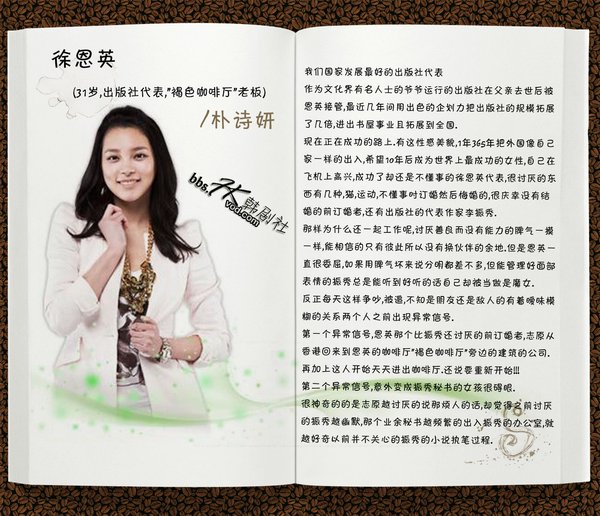 徐恩英
(31岁,出版社代表,"褐色咖啡厅"老板)
/朴诗妍
bbs.HK韩剧社
vod.com
我们国家发展最好的出版社代表
作为文化界有名人士的爷爷运行的出版社在父亲去世后被
恩英接管,最近几年间用出色的企划力把出版社的规模拓展
了几倍,进出书屋事业且拓展到全国.
现在正在成功的路上.有这性感美貌,1年365年把外国像自己
家一样的出入,希望10年后成为世界上最成功的女性,自己在
飞机上高兴,成功了却还是不懂事的徐恩英代表,很讨厌的东
西有几种,猫,运动,不懂事时订婚然后悔婚的,很庆幸没有结
婚的前订婚者,还有出版社的代表作家李振秀.
那样为什么还一起工作呢,讨厌善良而没有能力的脾气一模
一样,能相信的只有彼此所以没有换伙伴的余地.但是恩英一
直很委屈,如果用脾气坏来说分明都差不多,但能管理好面部
表情的振秀总是能听到好听的话自己却被当做是魔女.
反正每天这样争吵,被遛,不知是朋友还是敌人的有着暧昧模
糊的关系两个人之前出现异常信号.
第一个异常信号,恩英那个比振秀还讨厌的前订婚者,志原从
香港回来到恩英的咖啡厅"褐色咖啡厅"旁边的建筑的公司.
再加上这人开始天天进出咖啡厅.还说要重新开始!!!
第二个异常信号,意外变成振秀秘书的女孩很碍眼.
很神奇的的是志原越讨厌的说那烦人的话,却觉得之前讨厌
的振秀越幽默,那个业余秘书越频繁的出入振秀的办公室,就
越好奇以前并不关心的振秀的小说执笔过程.